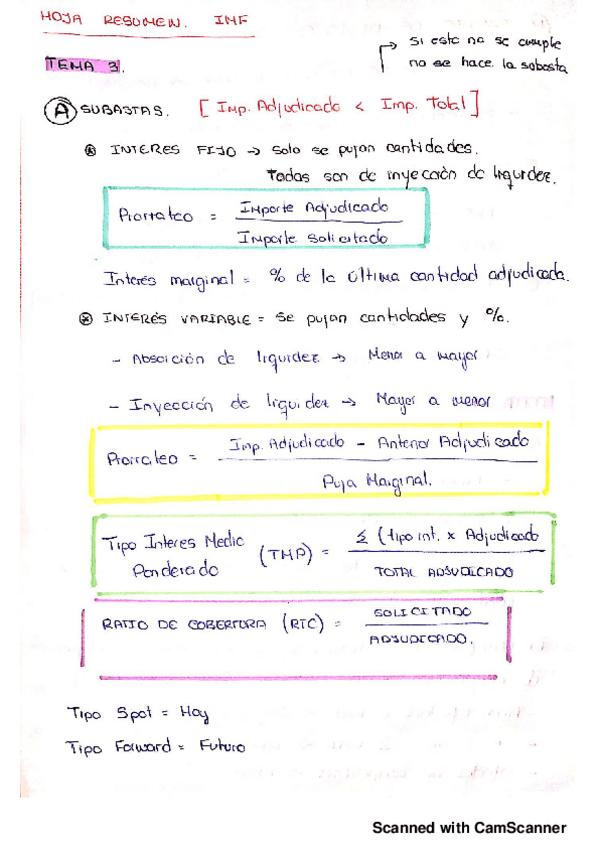 HOJA RESUMEN. INF
TEMA 3.
Si esto no se cumple
no se hace la subasta
A SUBASTAS. [Imp. Adjudicado < Imp. Total]
INTERES FIJO → Solo se pujan cantidades.
Todas son de inyección de liquidez.
Prorrateo = Importe Adjudicado
Importe Solicitado
Interés marginal = % de la última cantidad adjudicada.
INTERÉS VARIABLE = Se pujan cantidades y %.
- Absoición de liquidez → Menor a mayor
- Inyección de liquidez → Mayor a menor
Prorrateo = Imp. Adjudicado - Anterior Adjudicado
Puja Marginal.
Tipo Interes Medio
Ponderado (TMP) = Σ (tipo int. x Adjudicado
TOTAL ADJUDICADO
RATIO DE COBERTURA (RTC) = SOLICITADO
ADJUDICADO.
Tipo Spot = Hoy
Tipo Forward = Futuro
Scanned with CamScanner